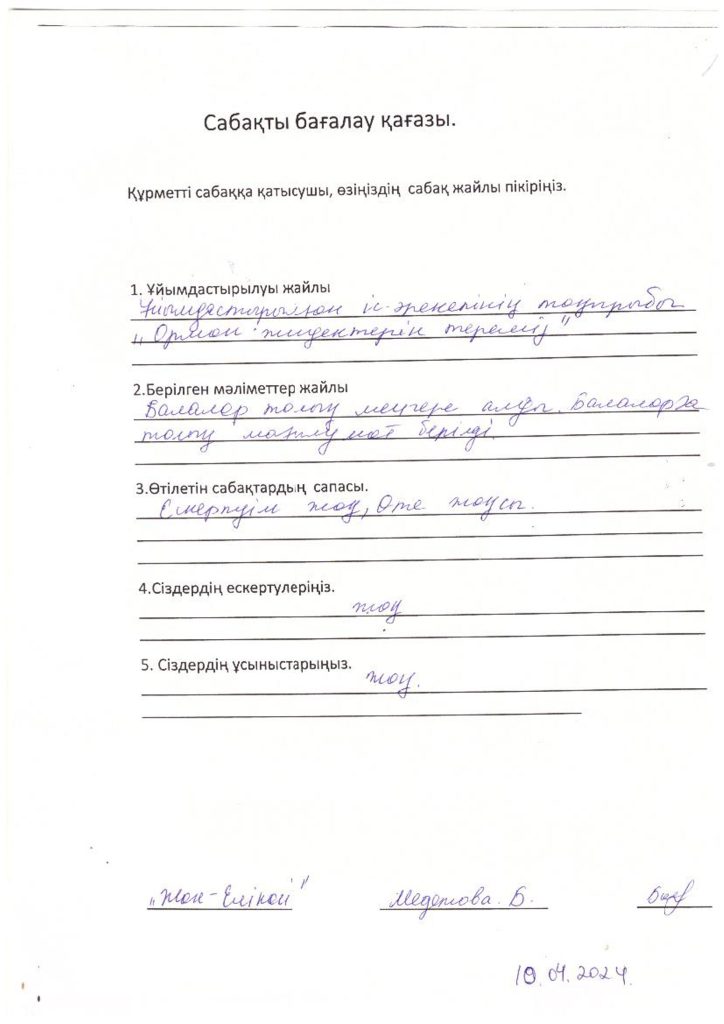 Сабақты бағалау қағазы.
Құрметті сабаққа қатысушы, өзіңіздің сабақ жайлы пікіріңіз.
1. Ұйымдастырылуы жайлы
Ұйымдастырылған іс-әрекетінің тақырыбы
„Орман жидектерін тереміз"
2.Берілген мәліметтер жайлы
Балалар толық меңгере алды. Балаларға
толық мағлұмат берілді.
3.Өтілетін сабақтардың сапасы.
Ескертуім жоқ, Өте жақсы.
4.Сіздердің ескертулеріңіз.
жоқ
5. Сіздердің ұсыныстарыңыз.
жоқ.
Медетова. Б.
19.04.2024.